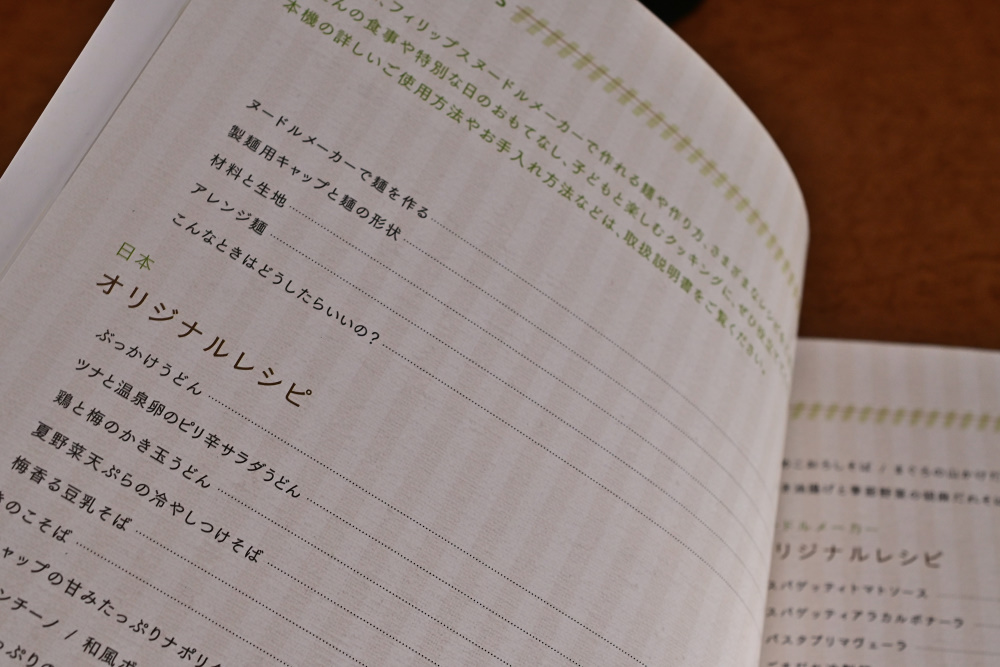 、フィリップスヌードルメーカーで作れる麺や作り方、さまざまなレシピ
の食事や特別な日のおもてなし、子どもと楽しむクッキングに、ぜひ
本機の詳しいご使用方法やお手入れ方法などは、取扱説明書をご覧ください。
ヌードルメーカーで麺を作る
製麺用キャップと麺の形状
材料と生地
アレンジ麺
こんなときはどうしたらいいの?
日本
オリジナルレシピ
ぶっかけうどん
ツナと温泉卵のピリ辛サラダうどん
鶏と梅のかき玉うどん
夏野菜天ぷらの冷やしつけそば
梅香る豆乳そば
きのこそば
ャップの甘みたっぷりナポリタ
ンチーノ / 和風ボ
っぷりの
ドルメーカー
リジナルレシピ
スパゲッティトマトソース
スパゲッティアラカルボナーラ
パスタプリマヴェーラ